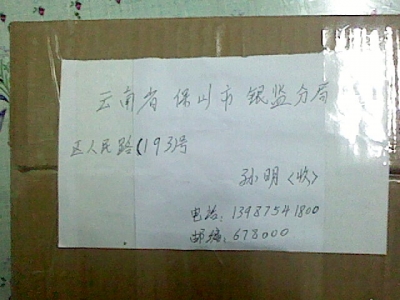 云南省 保山市 银监分局
区人民路(193)号
孙明〈收〉
电话:13987541800
邮编:678000